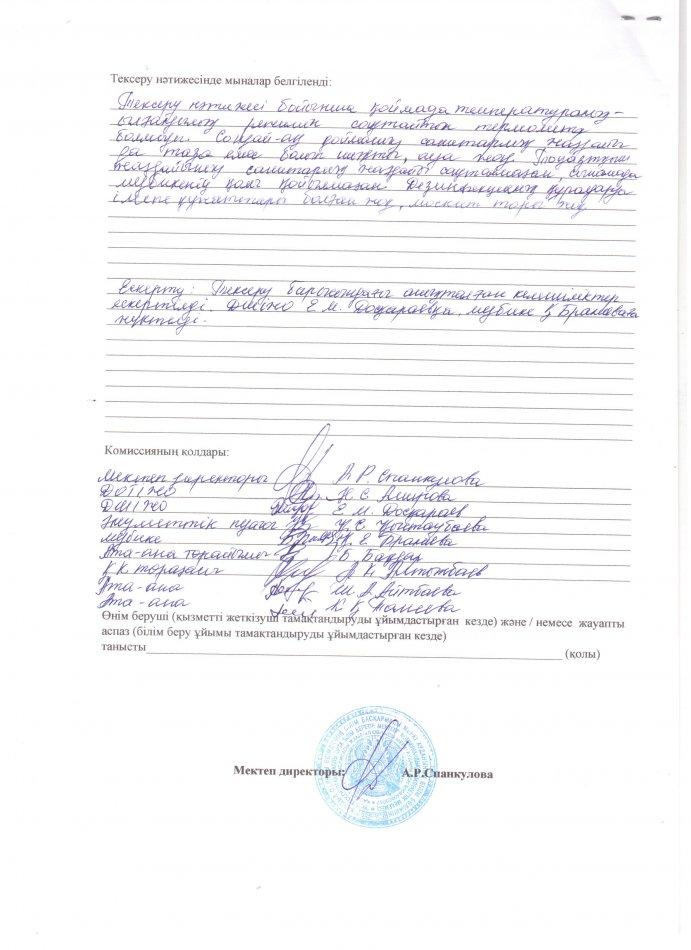 Тексеру нәтижесінде мыналар белгіленді:
Тексеру нәтижесі бойынша қоймада температуралық-
ылғалдылық режимін сақтайтын термометр
болмады. Сондай-ақ қойманың санитарлық жағдайы
да таза емес болып шықты, ауа жоқ. Тоңазытқыш
жағдайының санитарлық жағдайы сақталмаған, асханада
медбикенің қолы қойылмаған. Дезинфекциялық құралдарда
ілеспе құжаттары болған жоқ, москит торы жоқ
Ескерту: Тексеру барысындағы анықталған кемшіліктер
ескертілді. ДШІЖО Е.М. Досқараевқа, медбике
жүктелді.
Комиссияның қолдары:
Мектеп директоры А.Р. Спанкулова
ДОТІЖО Н.С. Амирова
ДШІЖО Е.М. Досқараев
Әлеуметтік педагог
Медбике
Ата-ана төрайымы Б.
К.К төрағасы
Ата-ана М.А. Айтбаева
Ата-ана К.К.
Өнім беруші (қызметті жеткізуші тамақтандыруды ұйымдастырған кезде) және / немесе жауапты
аспаз (білім беру ұйымы тамақтандыруды ұйымдастырған кезде)
танысты (қолы)
Мектеп директоры: А.Р.Спанкулова